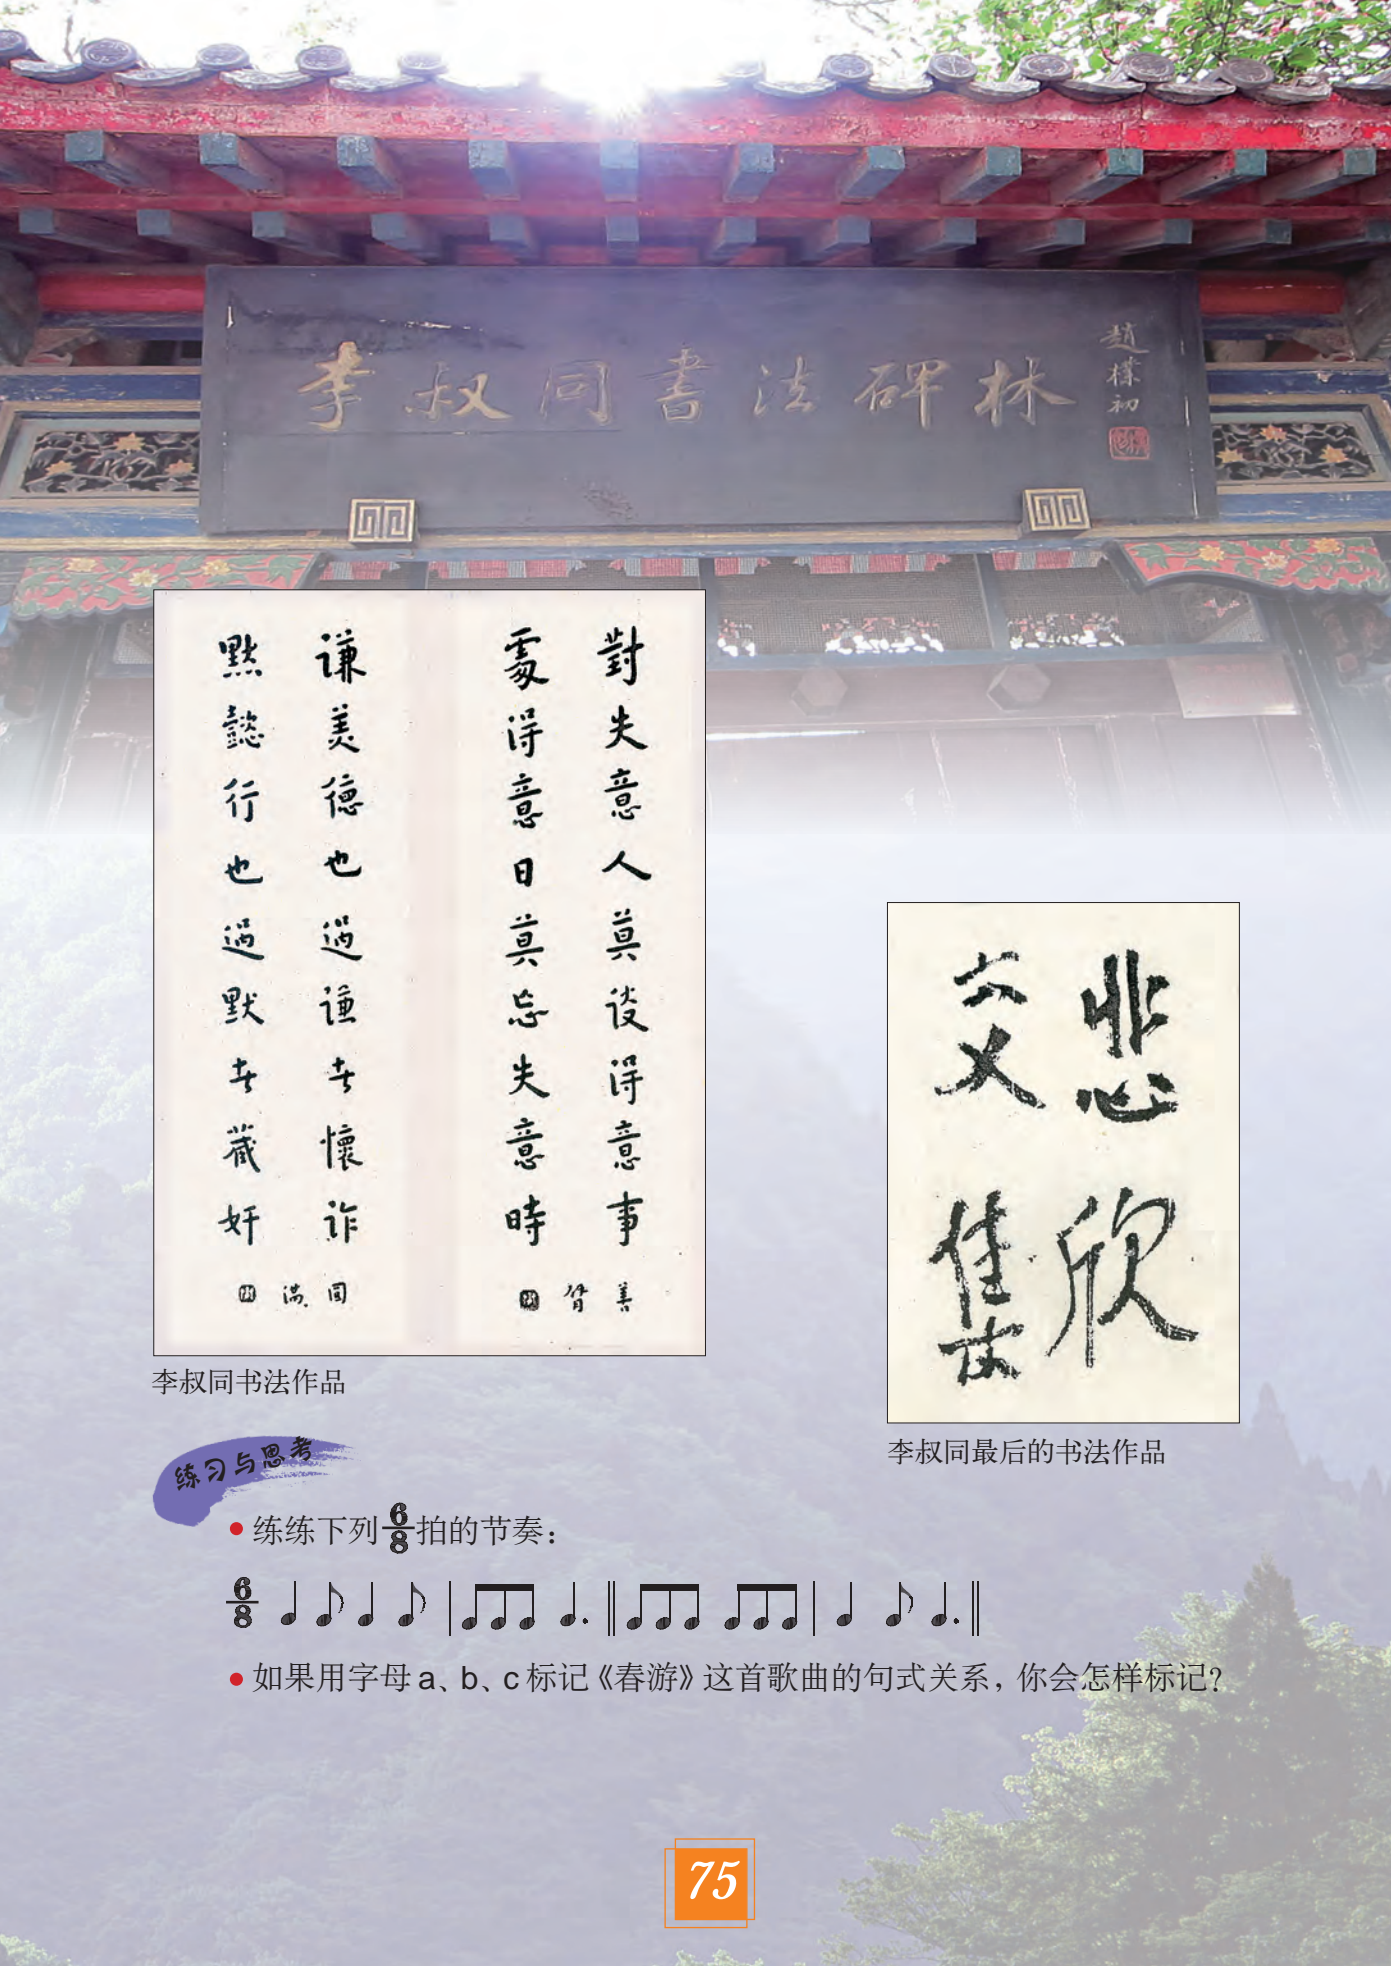 李叔同書法碑林
趙樸初
對失意人莫談得意事
處得意日莫忘失意時
善臂
謙美德也過謙者懷詐
默懿行也過默者藏奸
圓滿
李叔同书法作品
悲欣
交集
李叔同最后的书法作品
练习与思考
练练下列6/8拍的节奏:
6/8
如果用字母a、b、c标记《春游》这首歌曲的句式关系,你会怎样标记?
75